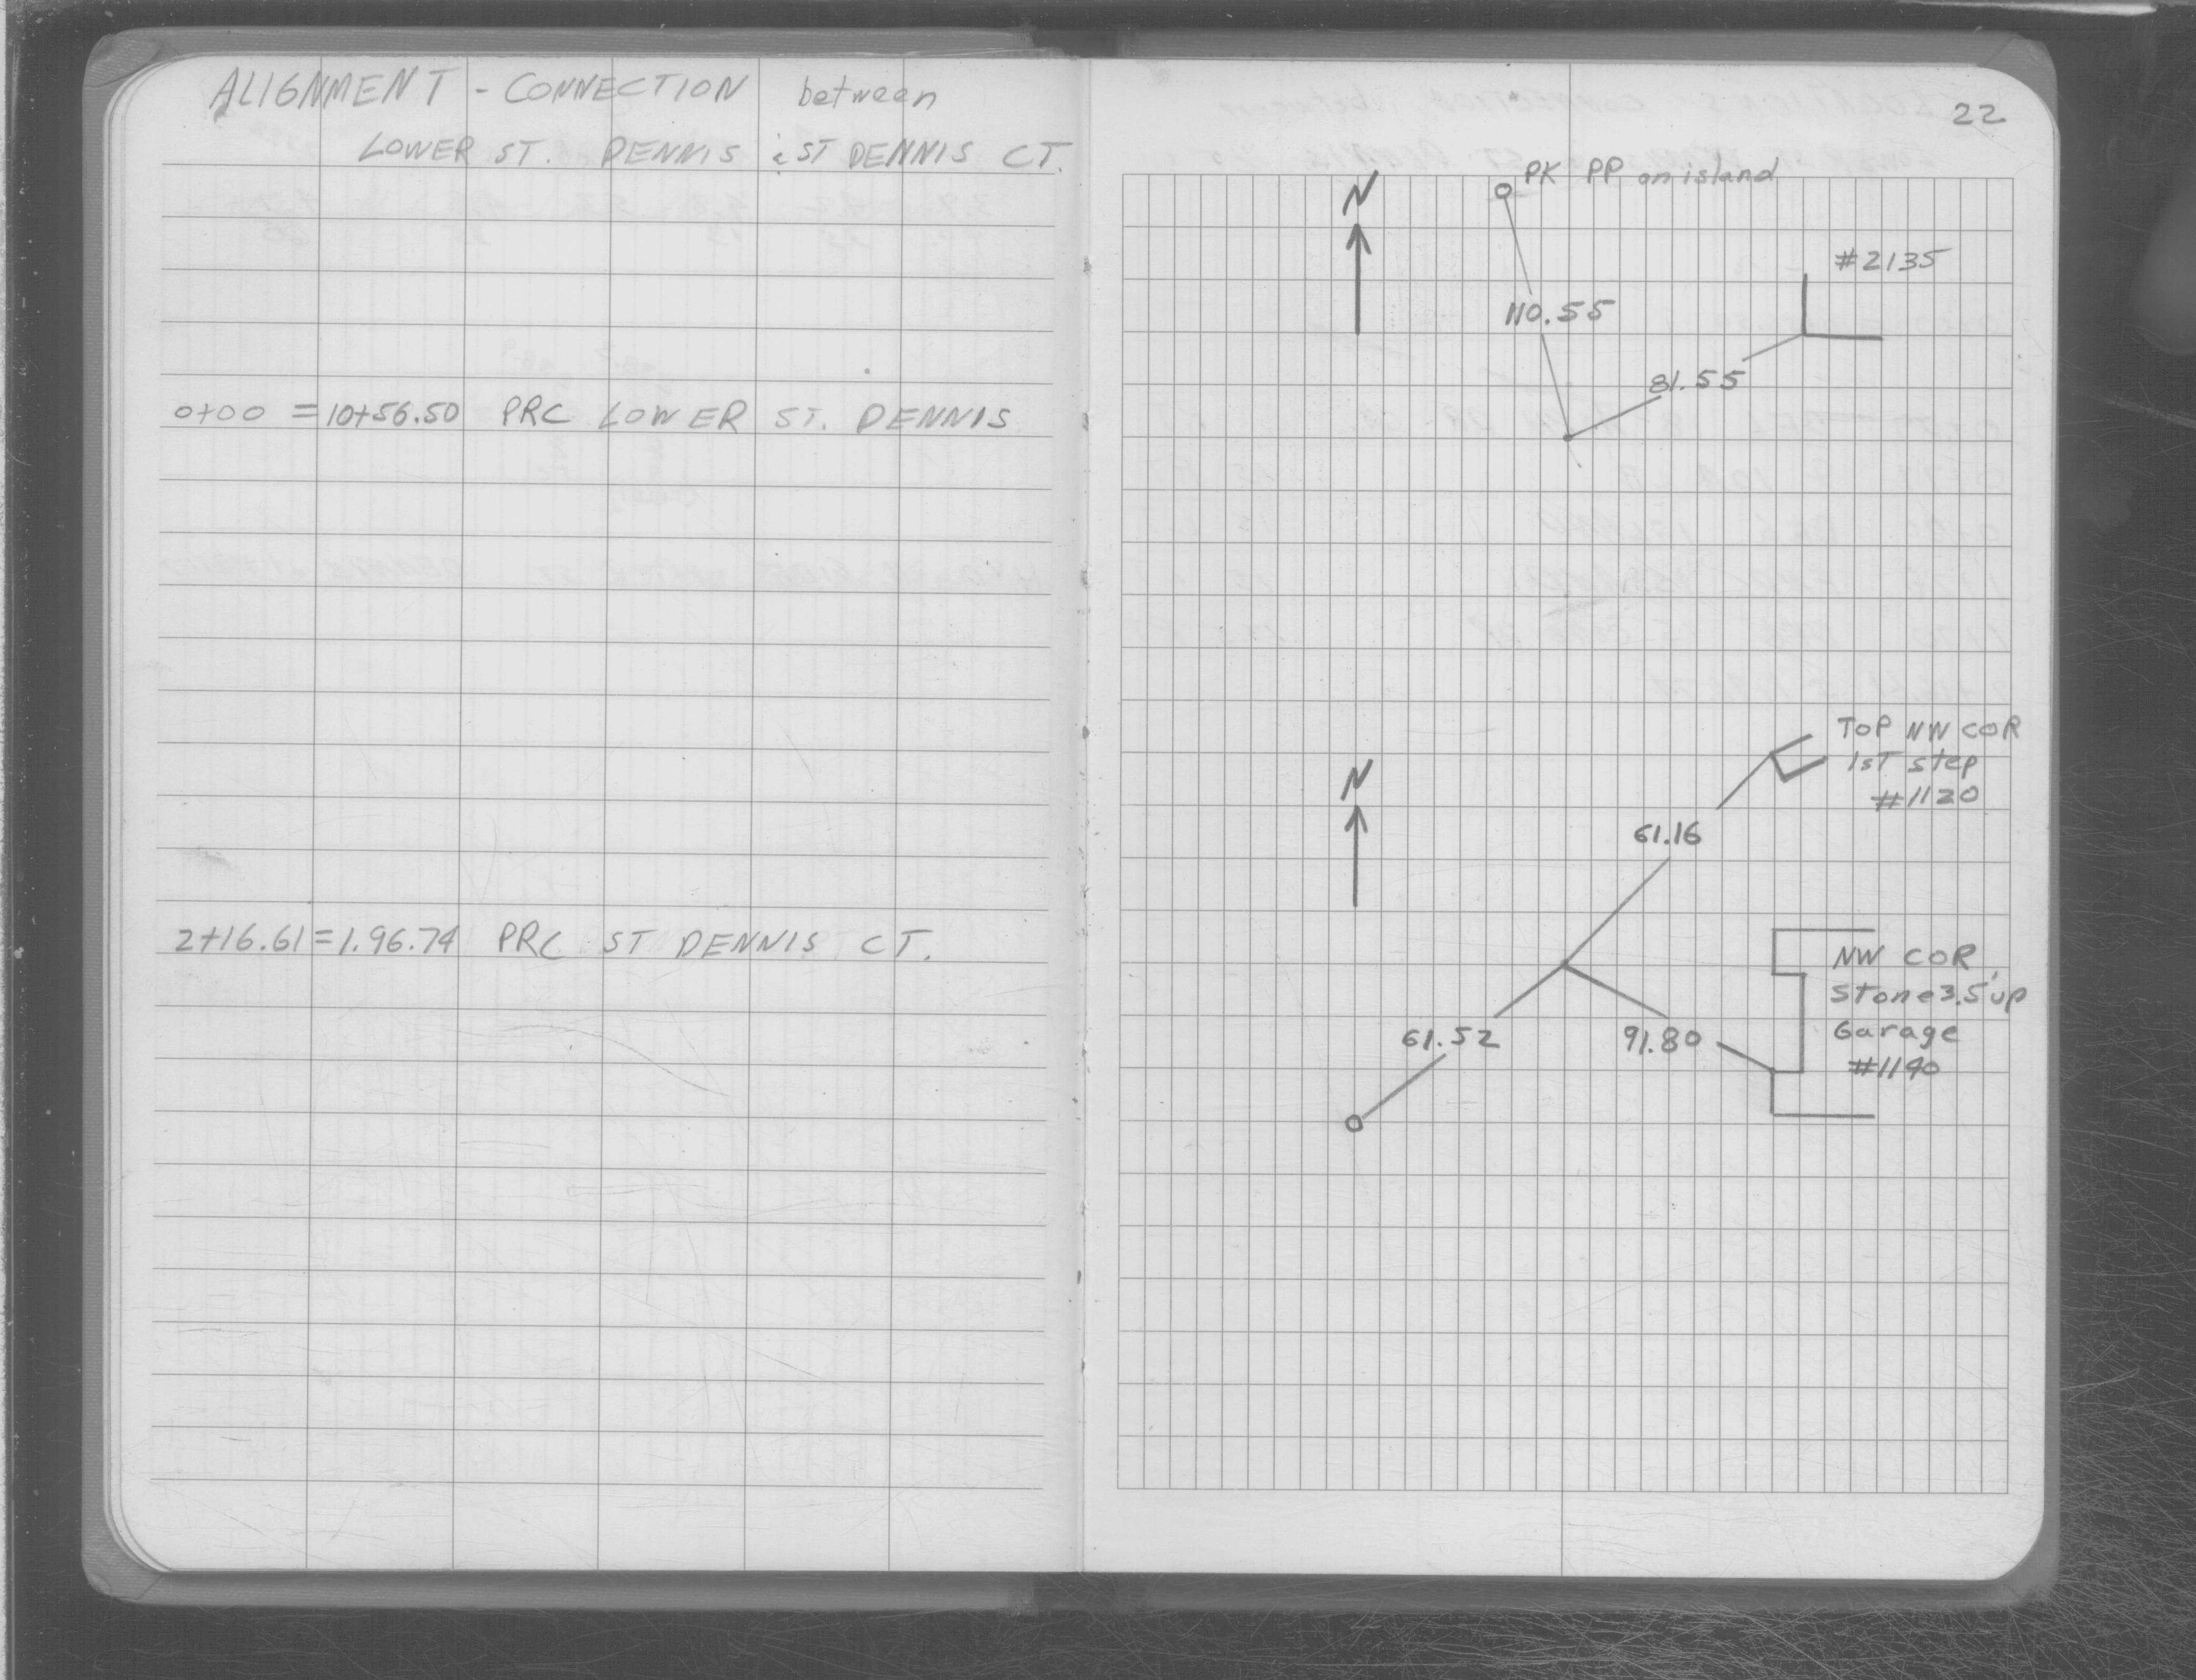 ALIGNMENT - CONNECTION between
LOWER ST. DENNIS & ST DENNIS CT.
0+00 = 10+56.50 PRC LOWER ST. DENNIS
2+16.61 = 1.96.74 PRC ST DENNIS CT.
22
PK PP on island
N
#2135
110.55
81.55
TOP NW COR
1ST step
#1120
N
61.16
NW COR
Stone 3.5' up
Garage
#1140
61.52
91.80